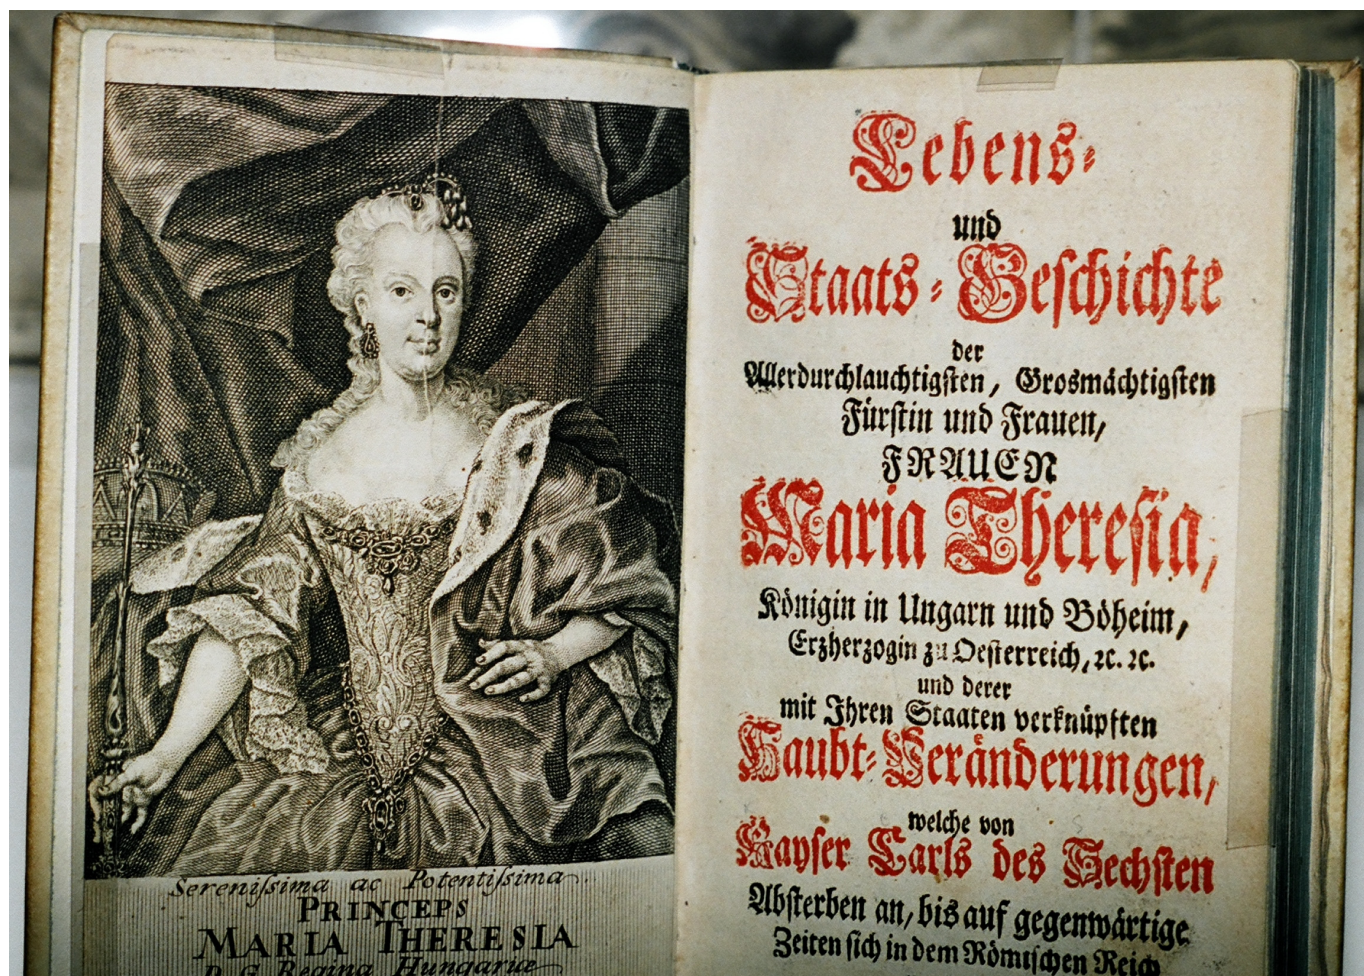 Sereniſsima ac Potentiſsima
PRINCEPS
MARIA THERESIA
D. G. Regina Hungariæ
Lebens-
und
Staats-Geſchichte
der
Allerdurchlauchtigſten, Grosmächtigſten
Fürſtin und Frauen,
FRAUEN
Maria Thereſia,
Königin in Ungarn und Böheim,
Erzherzogin zu Oeſterreich, ꝛc. ꝛc.
und derer
mit Ihren Staaten verknüpften
Haubt-Veränderungen,
welche von
Kayſer Carls des Sechſten
Abſterben an, bis auf gegenwärtige
Zeiten ſich in dem Römiſchen Reich